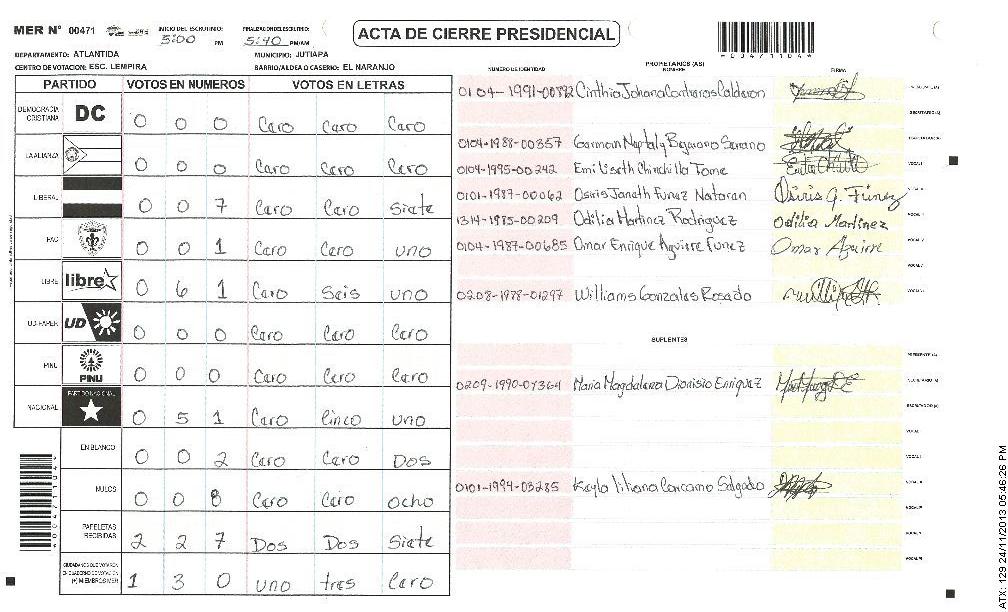 MER N° 00471 INICIO DEL ESCRUTINIO: 5:00 PM FINALIZACION DE ESCRUTINIO: 5:40 PM/AM
ACTA DE CIERRE PRESIDENCIAL
*00471104*
DEPARTAMENTO: ATLANTIDA MUNICIPIO: JUTIAPA
CENTRO DE VOTACION: ESC. LEMPIRA BARRIO/ALDEA O CASERIO: EL NARANJO
PARTIDO VOTOS EN NUMEROS VOTOS EN LETRAS
DEMOCRACIA CRISTIANA DC 0 0 0 Cero Cero Cero
LA ALIANZA 0 0 0 Cero Cero Cero
LIBERAL 0 0 7 Cero Cero Siete
PAC 0 0 1 Cero Cero uno
LIBRE libre 0 6 1 Cero Seis uno
UD-FAPER UD 0 0 0 Cero Cero Cero
PINU PINU 0 0 0 Cero Cero Cero
NACIONAL PARTIDO NACIONAL 0 5 1 Cero Cinco uno
EN BLANCO 0 0 2 Cero Cero Dos
NULOS 0 0 8 Cero Cero ocho
PAPELETAS RECIBIDAS 2 2 7 Dos Dos Siete
CIUDADANOS QUE VOTARON EN CUADERNO DE VOTACION (+) MIEMBROS MER 1 3 0 uno tres Cero
PROPIETARIOS (AS)
NUMERO DE IDENTIDAD NOMBRE FIRMA
Cinthia Johana Contreras Calderon
0104-1988-00357
0104-1995-00242 Emi Liseth Chinchilla Tome
0101-1987-00062 Osiris Janeth Funez Osiris G. Fúnez
1314-1985-00209 Odilia Martinez Rodriguez Odilia Martinez
0104-1987-00685 Omar Enrique Aguirre Funez Omar Aguirre
0208-1978-01297 Williams Gonzales Rosado
SUPLENTES
0209-1990-01364 Maria Magdalena Dionisio Enriquez
0101-1994-03285 Carcamo Salgado
*00471104*
ATX: 129 24/11/2013 05:46:26 PM